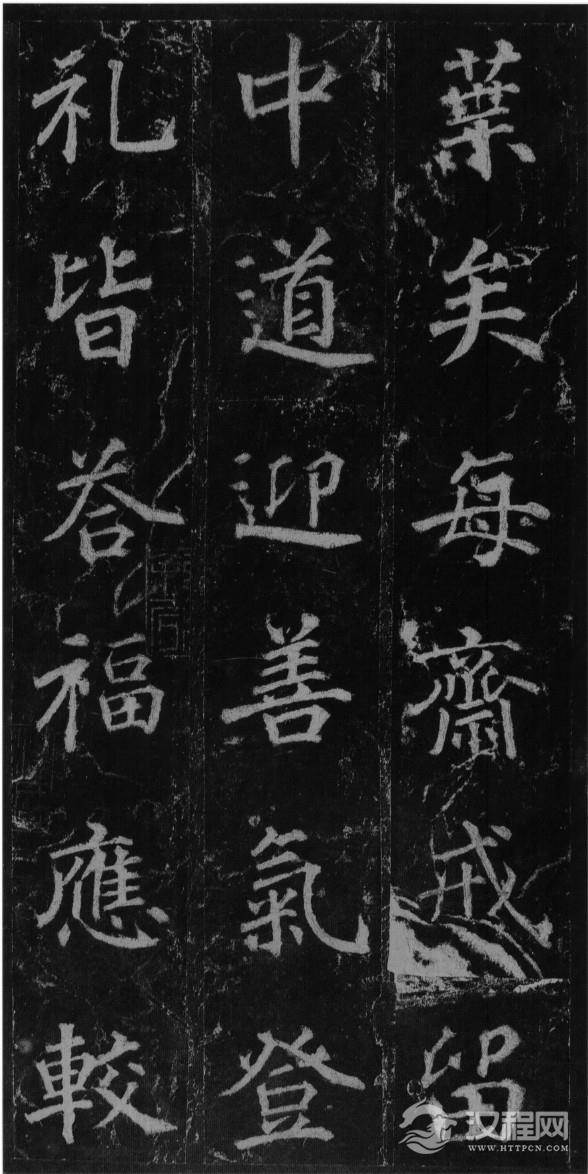 葉矣每齋戒留
中道迎善氣登
礼皆荅福應較
汉程网
WWW.HTTPCN.COM